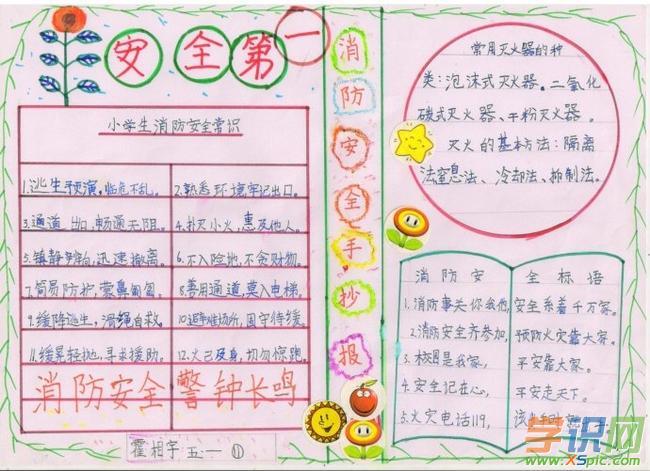 安全第一
小学生消防安全常识
1.逃生预演,临危不乱。
2.熟悉环境,牢记出口。
3.通道出口,畅通无阻。
4.扑灭小火,惠及他人。
5.镇静,迅速撤离。
6.不入险地,不贪财物。
7.简易防护,蒙鼻匍匐。
8.善用通道,莫入电梯。
9.缓降逃生,滑绳自救。
10.避难场所,固守待援。
11.缓晃轻抛,寻求援助。
12.火已及身,切勿惊跑。
消防安全警钟长鸣
霍相宇 五一 ⑪
消防安全手抄报
常用灭火器的种
类:泡沫式灭火器。二氧化
碳式灭火器、干粉灭火器。
灭火的基本方法:隔离
法窒息法、冷却法、抑制法。
消防安全标语
1.消防事关你我他,安全系着千万家。
2.消防安全齐参加,预防火灾靠大家。
3.校园是我家,平安靠大家。
4.安全记在心,平安走天下。
5.火灾电话119,
学识网
www.XSpic.com